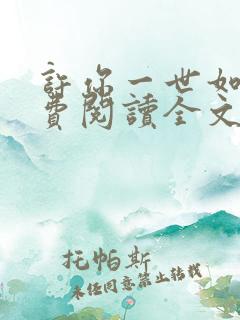 許你一世如
費閱讀全文
托帕斯
未經同意禁止轉載